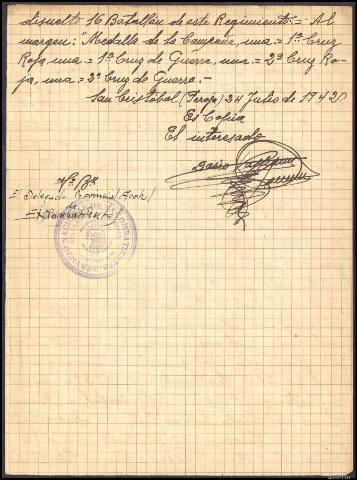 disuelto 16 Batallón de este Regimiento.= Al
margen: "Medalla de la Campaña, una = 1ª Cruz
Roja, una = 1ª Cruz de Guerra, una = 2ª Cruz Ro-
ja, una = 2ª Cruz de Guerra.-
San Cristóbal ( ) 24 Julio de 1942
Es Copia
El interesado
Vº Bº
El Delegado Comarcal